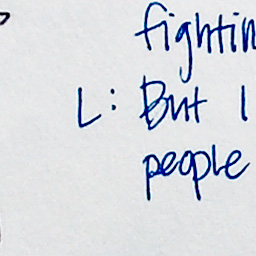 fightin
L: But I
people